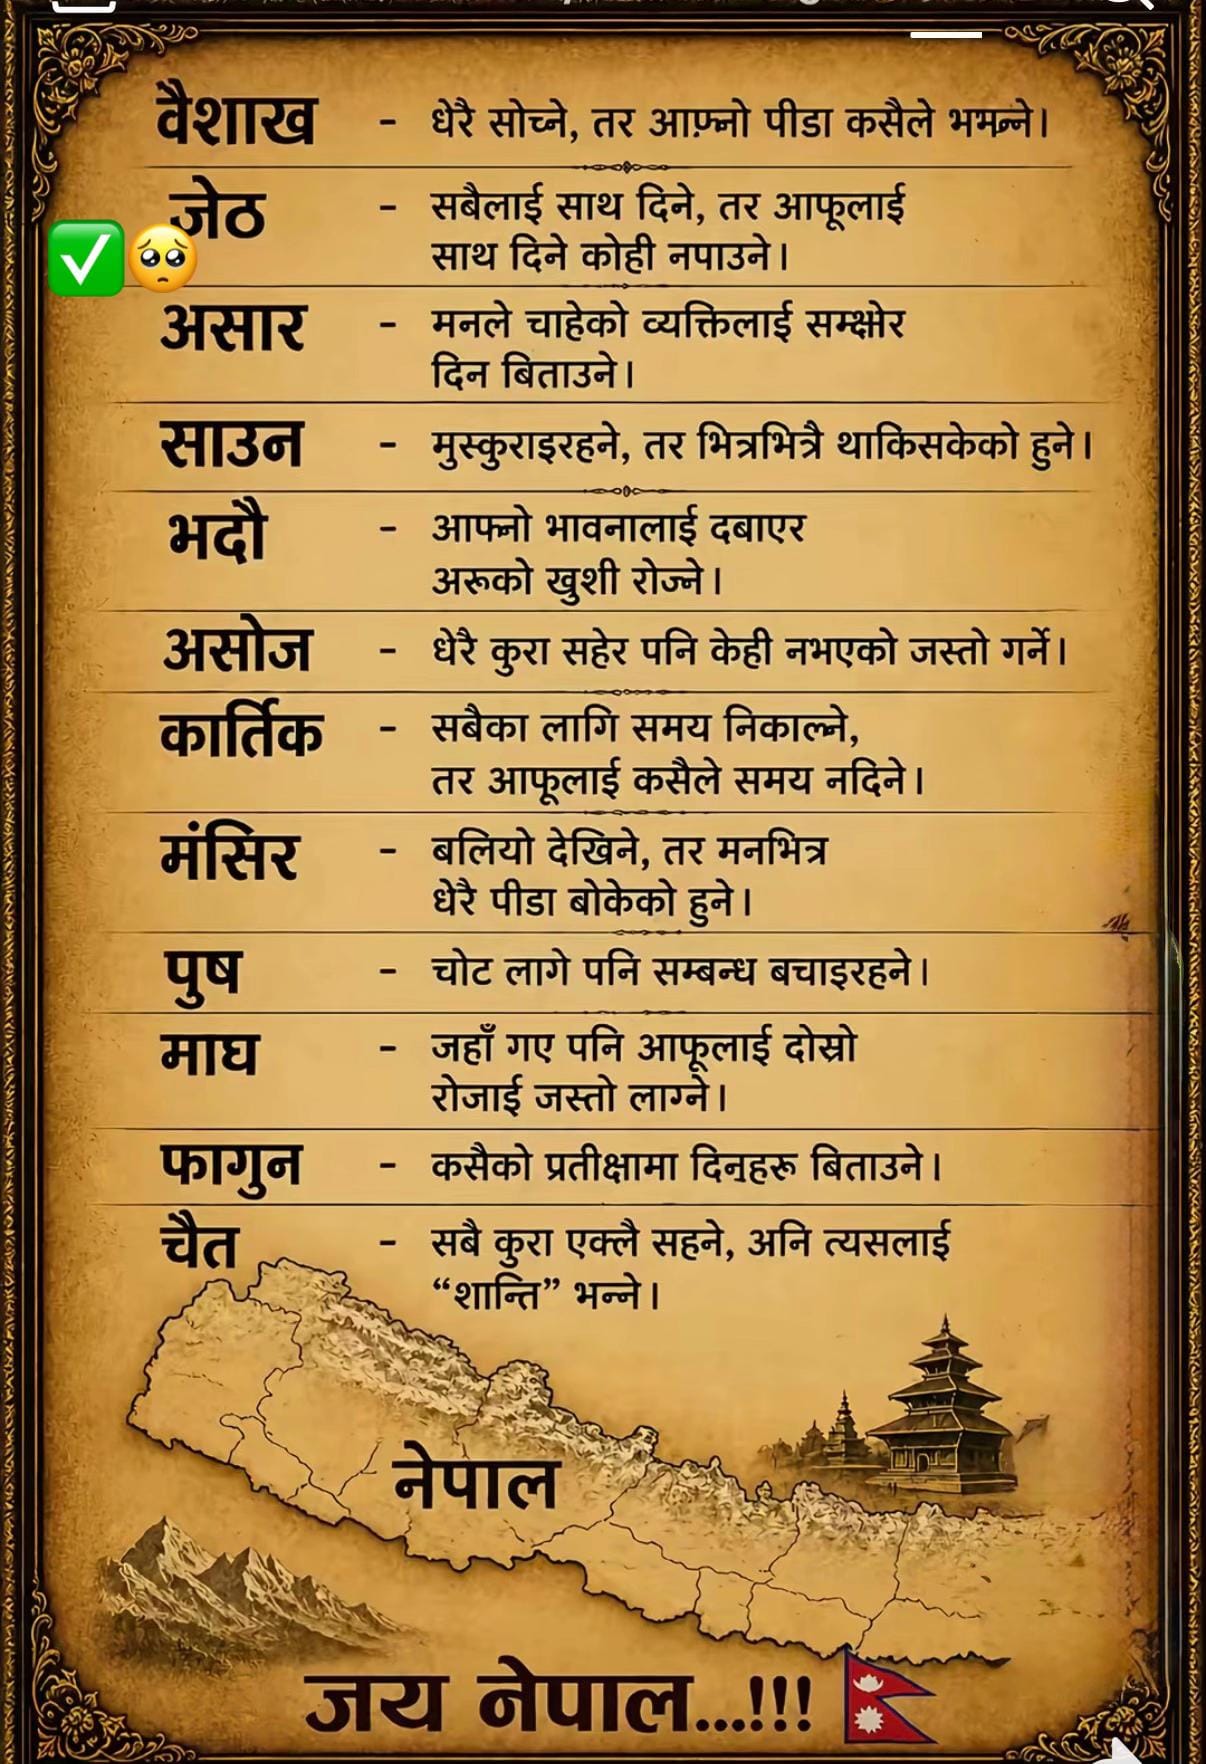 वैशाख - धेरै सोच्ने, तर आफ्नो पीडा कसैले
जेठ - सबैलाई साथ दिने, तर आफूलाई
साथ दिने कोही नपाउने।
असार - मनले चाहेको व्यक्तिलाई
दिन बिताउने।
साउन - मुस्कुराइरहने, तर भित्रभित्रै थाकिसकेको हुने।
भदौ - आफ्नो भावनालाई दबाएर
अरूको खुशी रोज्ने।
असोज - धेरै कुरा सहेर पनि केही नभएको जस्तो गर्ने।
कार्तिक - सबैका लागि समय निकाल्ने,
तर आफूलाई कसैले समय नदिने।
मंसिर - बलियो देखिने, तर मनभित्र
धेरै पीडा बोकेको हुने।
पुष - चोट लागे पनि सम्बन्ध बचाइरहने।
माघ - जहाँ गए पनि आफूलाई दोस्रो
रोजाई जस्तो लाग्ने।
फागुन - कसैको प्रतीक्षामा दिनहरू बिताउने।
चैत - सबै कुरा एक्लै सहने, अनि त्यसलाई
“शान्ति” भन्ने।
नेपाल
जय नेपाल...!!!